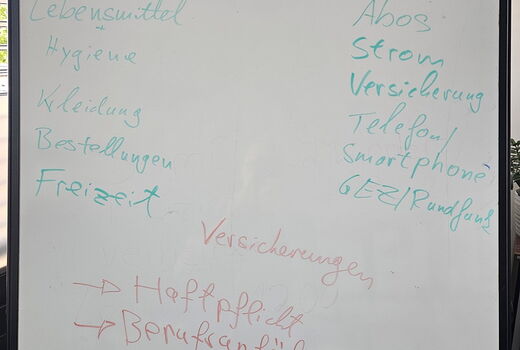 Lebensmittel
+
Hygiene
Kleidung
Bestellungen
Freizeit
Abos
Strom
Versicherung
Telefon/
Smartphone
GEZ/Rundfunk
Versicherungen
→ Haftpflicht
→